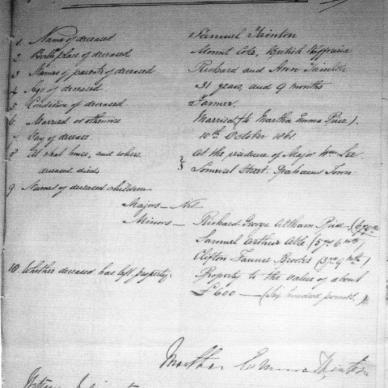 1. Name of deceased Samuel Trinton
2. Birth place of deceased Mount Cole, British Kaffraria
3. Names of parents of deceased Richard and Ann
4. Age of deceased 31 years and 9 months
5. Condition of deceased Farmer
6. Married or otherwise Married (to Martha Emma Pine)
7. Day of decease 10th October 1861
8. At what house, and where At the residence of Major Wm Lee
deceased died Somerset Street. Grahams Town
9 Names of deceased children
Majors — Nil
Minors — Richard George Pine
Samuel Arthur (5 yrs 6 mths)
Clifton Brooks (3 yrs 9 mths)
10. Whether deceased has left property. Property to the value of about
£600 — (Six hundred pounds)
Martha Emma